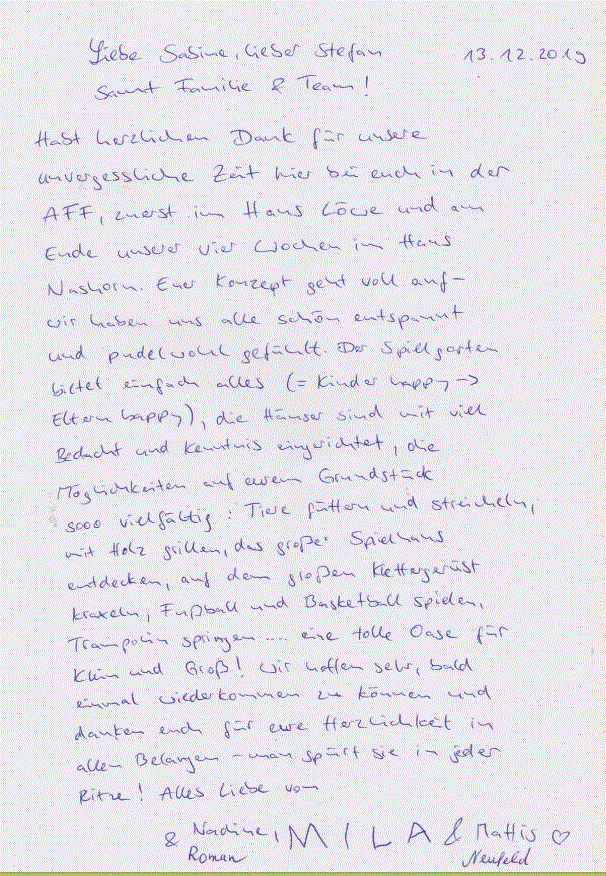 Liebe Sabine, lieber Stefan 13.12.2019
Samt Familie & Team!
Habt herzlichen Dank für unsere
unvergessliche Zeit hier bei euch in der
AFF, zuerst im Haus Löwe und am
Ende unserer vier Wochen im Haus
Nashorn. Euer Konzept geht voll auf-
wir haben uns alle schön entspannt
und pudelwohl gefühlt. Der Spielgarten
bietet einfach alles (= Kinder happy ->
Eltern happy), die Häuser sind mit viel
Bedacht und Kenntnis eingerichtet, die
Möglichkeiten auf eurem Grundstück
sooo vielfältig: Tiere füttern und streicheln,
mit Holz grillen, das große Spielhaus
entdecken, auf dem großen Klettergerüst
kraxeln, Fußball und Basketball spielen,
Trampolin springen .... eine tolle Oase für
Klein und Groß! Wir hoffen sehr, bald
einmal wiederkommen zu können und
danken euch für eure Herzlichkeit in
allen Belangen - man spürt sie in jeder
Ritze! Alles Liebe von
& Nadine, MILA & Mattis ♡
Roman Neufeld